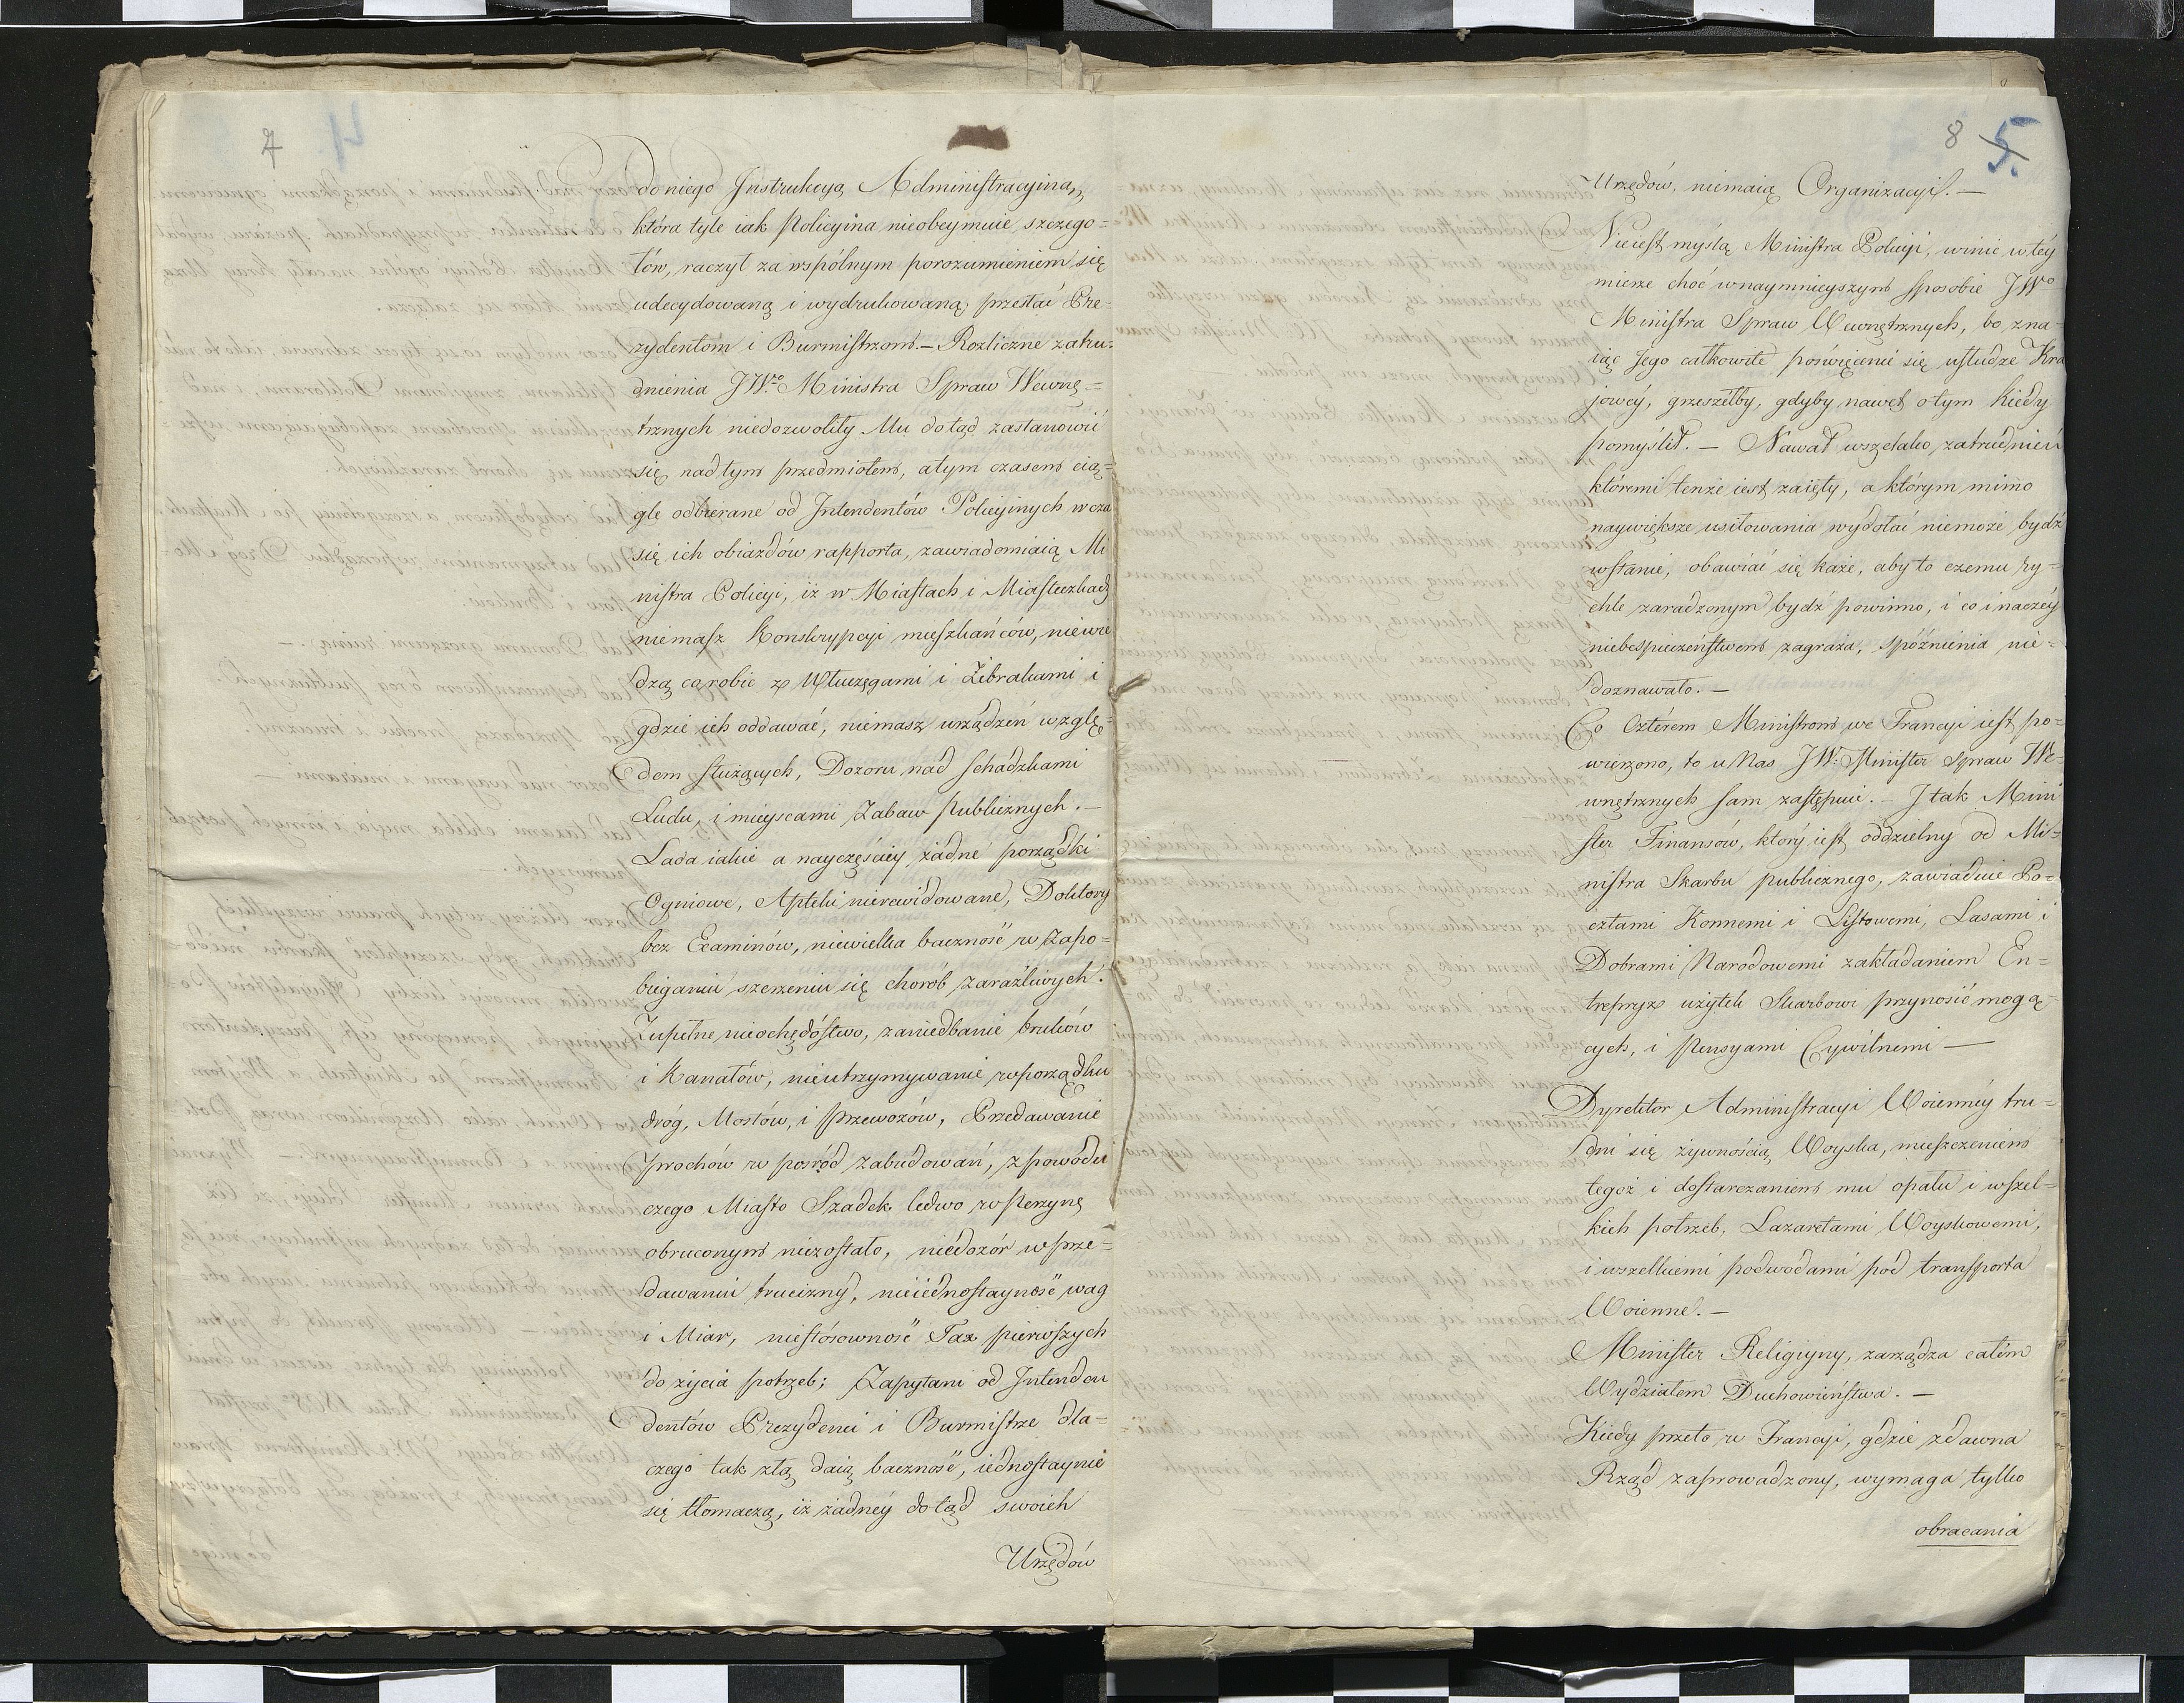 7
do niego Instrukcyą Administracyiną,
która tyle iak Policyina nieobeymuie szczego=
łów, raczył za wspólnym porozumieniem się
udecydowaną i wydrukowaną przesłać Pre=
zydentom i Burmistrzom. — Rozliczne zatru=
dnienia JWo Ministra Spraw Wewnę=
trznych niedozwoliły Mu dotąd zastanowić
się nad tym przedmiotem, a tym czasem cią=
głe odbierane od Intendentów Policyinych w cza
się ich obiazdów rapporta, zawiadomiaią Mi
nistra Policyi, iż w Miastach i Miasteczkach
niemasz Konskrypcyi mieszkańców, niewie
dzą co robić z Włuczęgami i Żebrakami i
gdzie ich oddawać, niemasz urządzeń wzglę=
dem służących, Dozoru nad schadzkami
Ludu, i mieyscami Zabaw Publicznych. —
Lada iakie a nayczęściey żadne porządki
Ogniowe, Apteki nierewidowane, Doktory
bez Examinów, niewielka baczność w Zapo=
bieganiu szerzeniu się chorób zaraźliwych.
Zupełne nieochędóstwo, zaniedbanie bruków
i Kanałów, nieutrzymywanie w porządku
dróg, Mostów, i przewozów, Przedawanie
prochów w pośród zabudowań, z powodu
czego Miasto Szadek ledwo w Perzynę
obruconym niezostało, niedozór w prze=
dawaniu trucizny, nieiednostayność wag
i Miar, niestósowność Tax pierwszych
do życia potrzeb; Zapytani od Intenden
dentów Prezydenci i Burmistrze dla=
czego tak złą daią baczność, iednostaynie
się tłomaczą, iż żadney dotąd swoich
Urzędów
8 5.
Urzędów, niemaią Organizacyi. —
Nieiest myślą Ministra Policyi, winić w tey
mierze choć w naymnieyszym sposobie JWo
Ministra Spraw Wewnętrznych, bo zna=
iąc Jego całkowite poświęcenie się usłudze Kra
jowéy, grzeszełby, gdyby nawet o tym kiedy
pomyślił. — Nawał wszelako zatrudnień
któremi tenże iest zaięty, a którym mimo
naywiększe usiłowania wydołać niemoże bydź
w stanie, obawiać się każe, aby to czemu ry=
chle zaradzonym bydź powinno, i co inaczéy
niebespieczeństwem zagraża, spóźnienia nie=
doznawało. —
Co Czterem Ministrom we Francyi iest po=
wierzono, to u Nas JW. Minister Spraw We=
wnętrznych sam zastępuie. — I tak Mini
ster Finansów, który iest oddzielny od Mi=
nistra Skarbu publicznego, zawiaduie Po=
cztami Konnemi i Listowemi, Lasami i
Dobrami Narodowemi zakładaniem En=
trepryz użytek Skarbowi przynosić mogą=
cych, i Pensyami Cywilnemi —
Dyrektor Administracyi Woienney tru=
dni się żywnością Woyska, mieszczeniem
tegoż i dostarczaniem mu opału i wszel=
kich potrzeb, Lazaretami Woyskowemi,
i wszelkiemi podwodami pod transporta
Woienne. —
Minister Religijny, zarządza całém
Wydziałem Duchowieństwa. —
Kiedy przeto w Francyi, gdzie zdawna
Rząd zaprowadzony, wymaga tylko
obracania